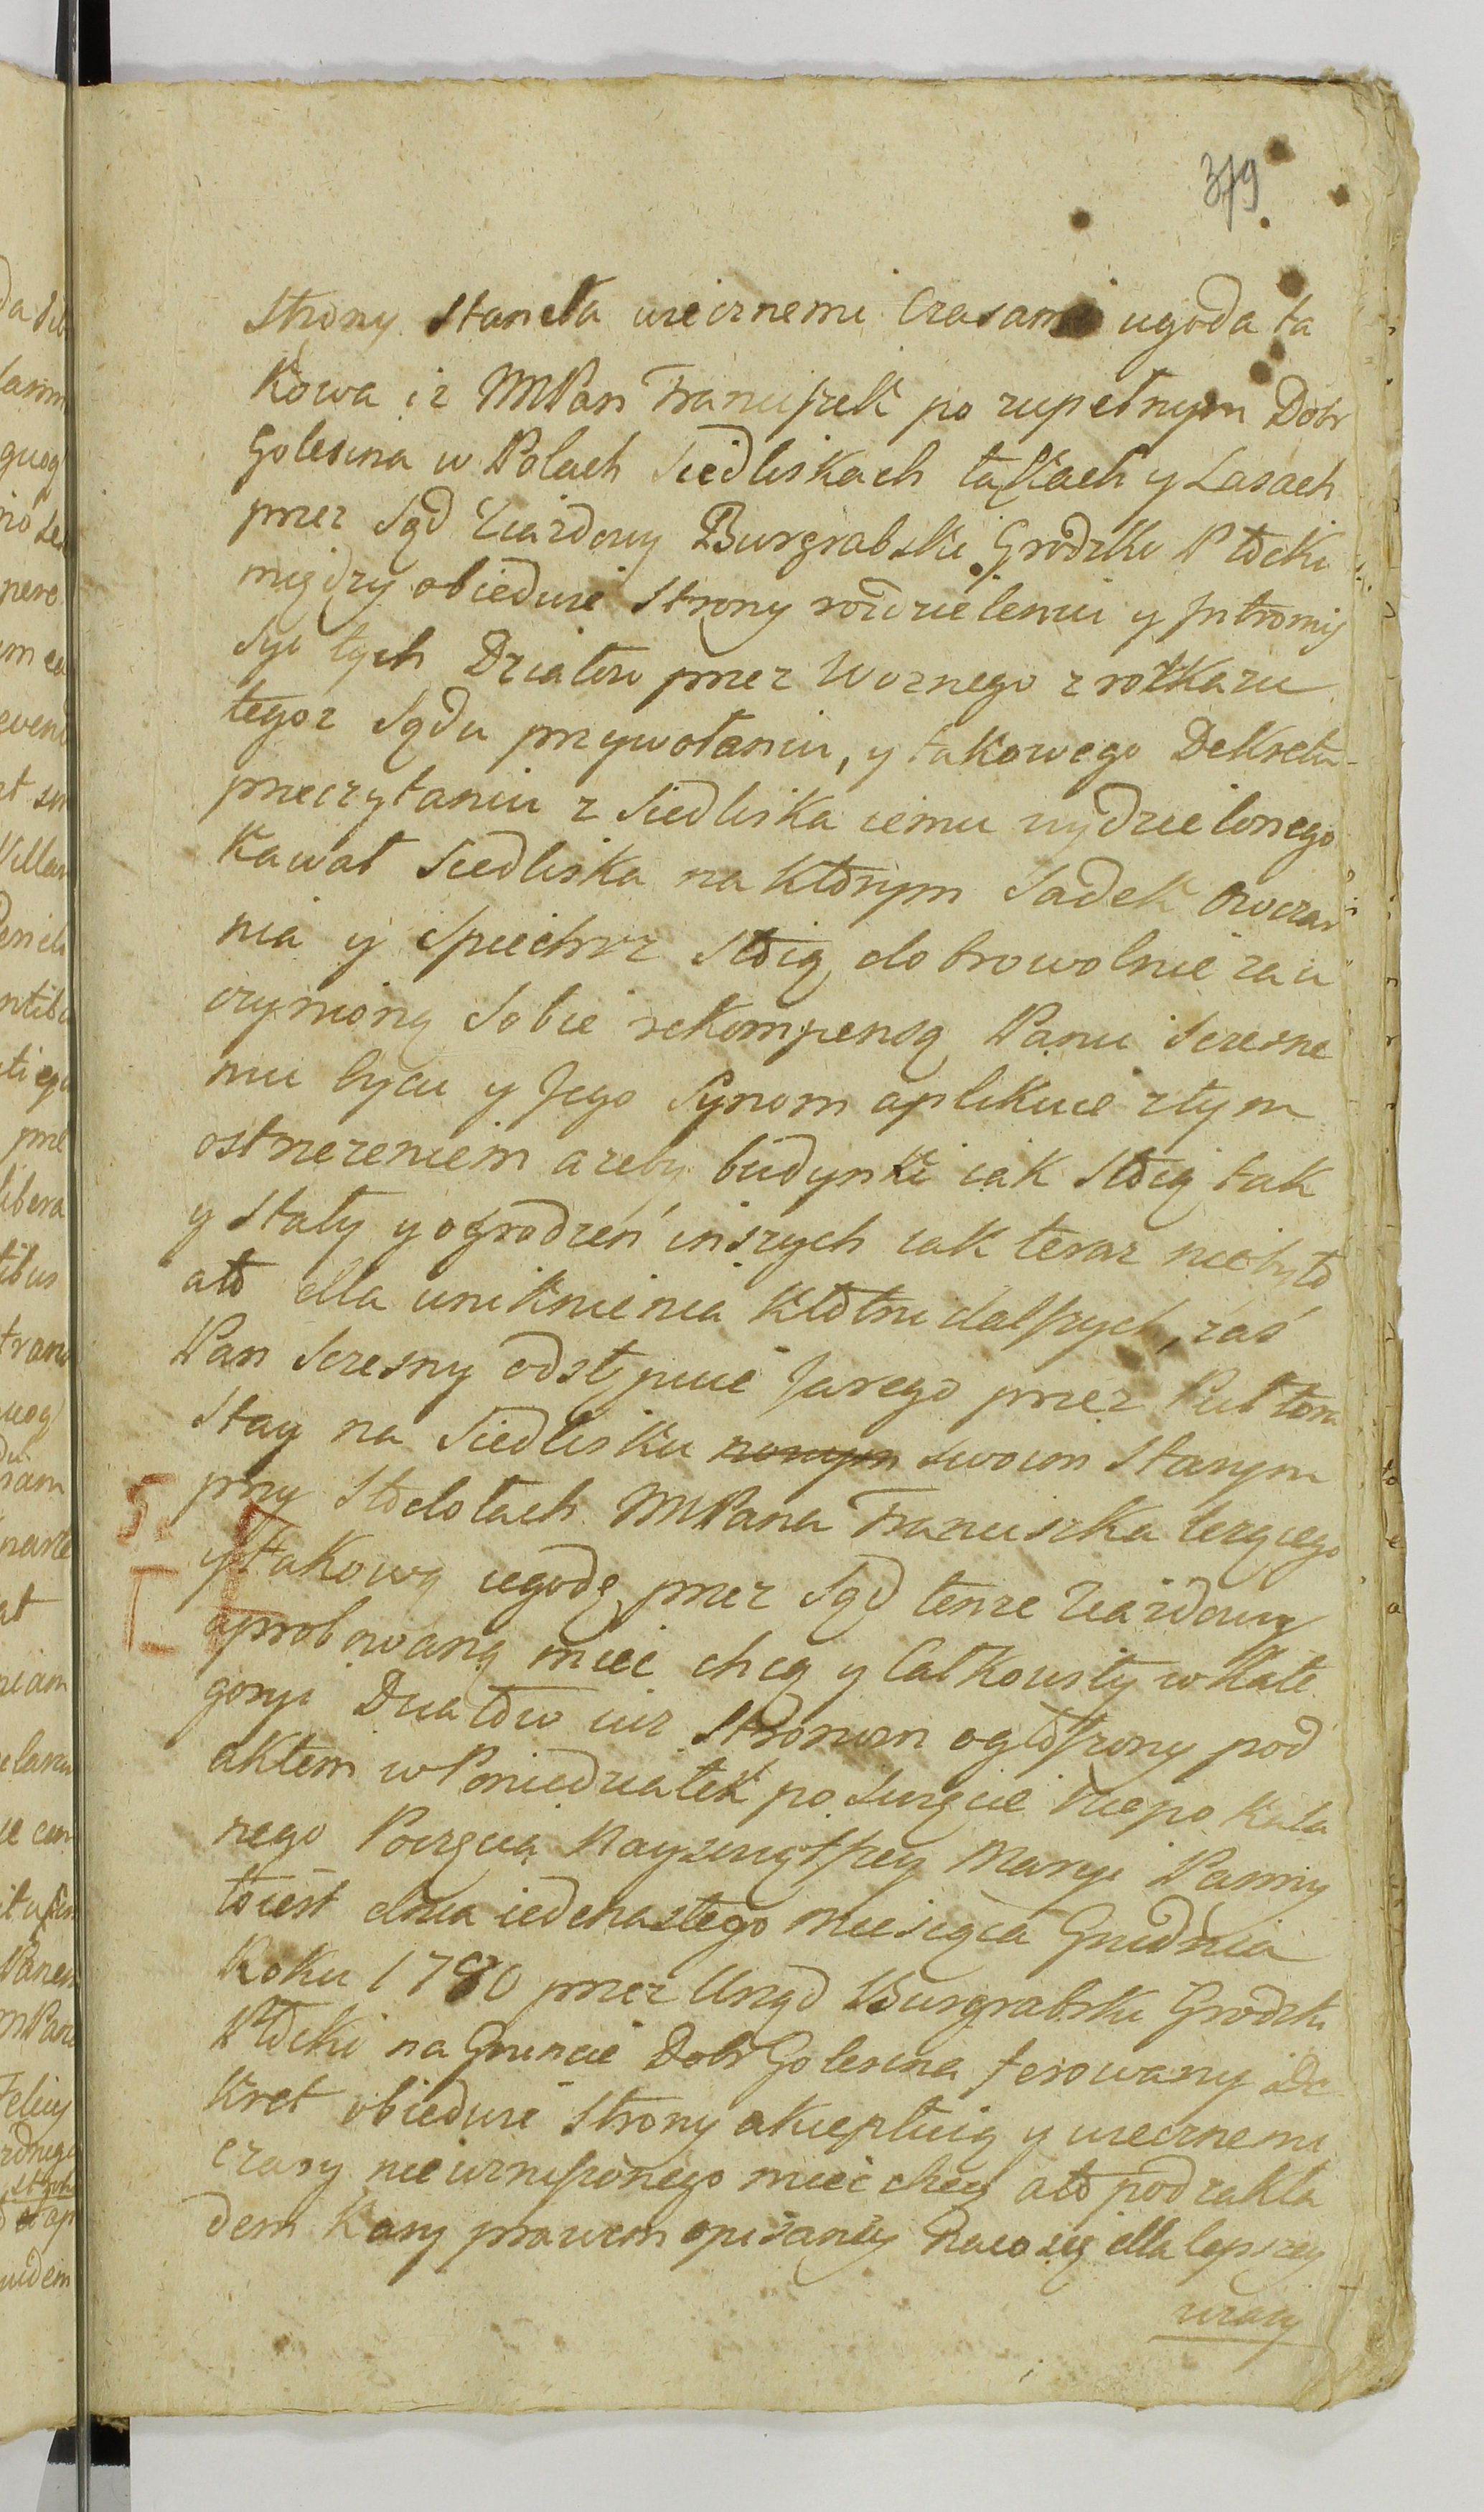 379
Strony Staneła wiecznemi Czasami ugoda ta
kowa iz MPan Franciszek po zupełnym Dobr
Golesina w Polach Siedliskach łąkach y Lasach
przez Sąd Ziazdowy Burgrabski Grodzki Płocki
między obiedwie Strony rozdzieleniu y Intromis
syi tych Działow przez Woznego z rozkazu
tegoz Sądu przywołaniu, y takowego Dekretu
przeczytaniu z Siedliska iemu wydzielonego
Kawał Siedliska na ktorym Sadek owczar
nia y Spiechrz Stoią dobrowolnie za u
czynioną Sobie rekompensą Panu Szczesne
mu życiu y Jego Synom aplikuie z tym
ostrzezeniem azeby budynki iak Stoią tak
y Stały y ogrodzeń inszych iak teraz nie było
a to dla uniknienia kłotni dalszych, zaś
Pan Szczesny odstępuie Jarego przez Pułtora
Stay na Siedlisku nowym swoim Starym
przy Stodołach MPana Franciszka lezącego
y takową ugodę przez Sąd tenze Ziazdowy
aprobowaną miec chcą y Całkowity w Kate
goryi Działow iuz Stronom ogłoszony pod
aktem w Poniedziałek po Swięcie Niepokala
nego Poczęcia Nayswiętszey Maryi Panny
to iest dnia iedenastego Miesiąca Grudnia
Roku 1780 przez Urząd Burgrabski Grodzki
Płocki na Gruncie Dobr Golesina ferowany De
kret obiedwie Strony akceptuią y wiecznemi
czasy niewzruszonego miec chcą a to pod zakła
dem Kary prawem opisaney Na co się dla lepszey
wiary